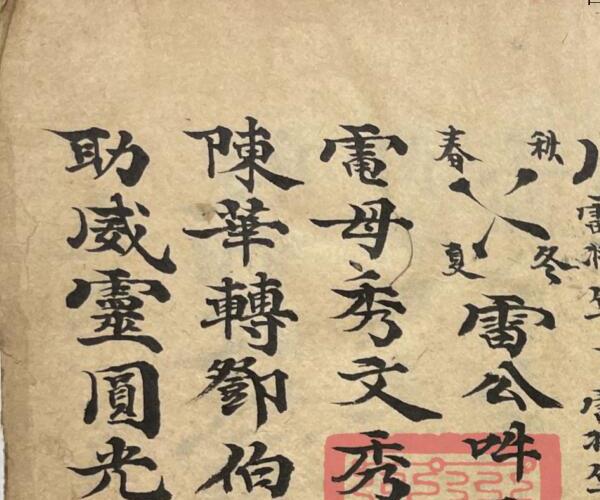 秋 冬
春 夏
雷公吽
電母秀文秀
陳華轉鄧伯
助威靈圓光